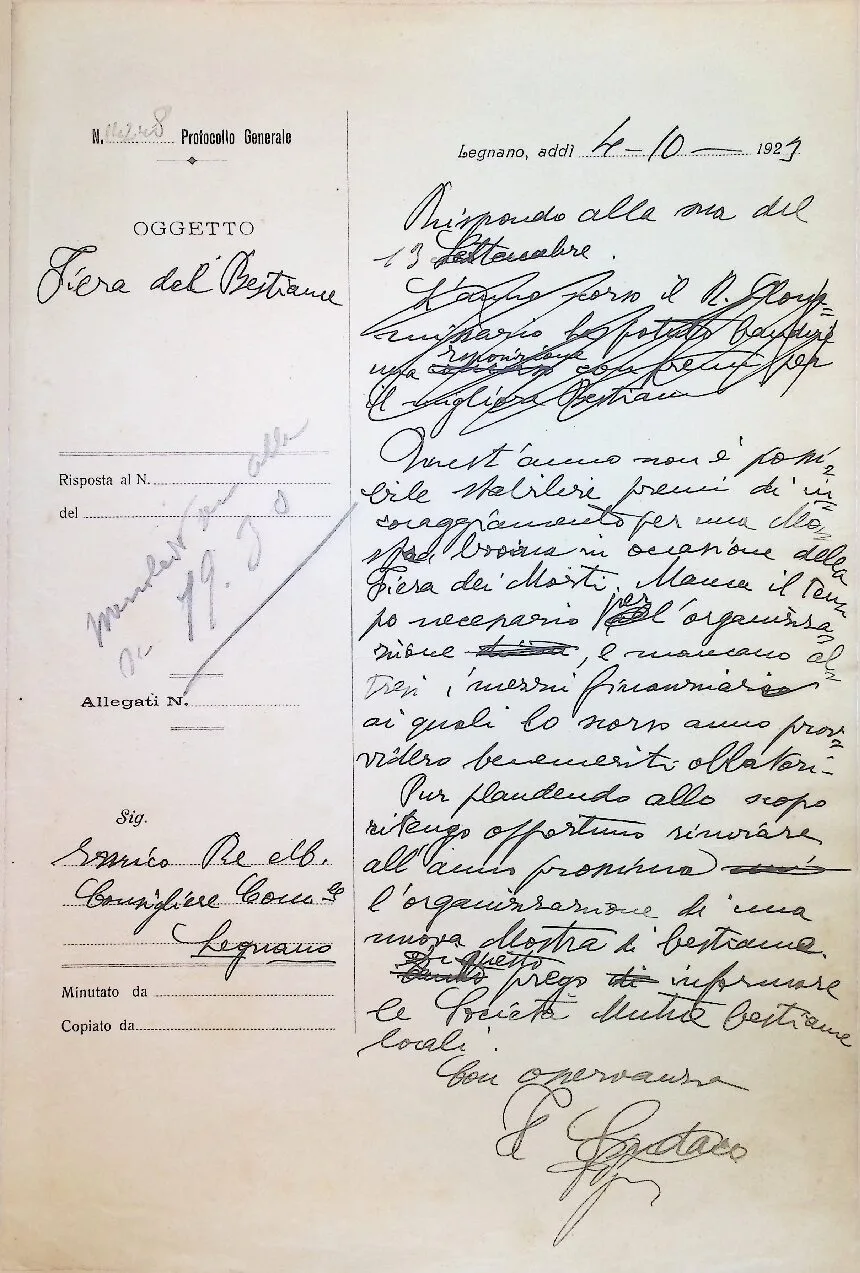 N. 14248 Protocollo Generale
OGGETTO
Fiera del Bestiame
Risposta al N.
del
19.30
Allegati N.
Sig.
Enrico Re
Consigliere Com.le
Legnano
Minutato da
Copiato da
Legnano, addì 4-10- 1923
Rispondo alla sua del
13 Settembre.
L'anno scorso il R. Com=
missario ha potuto bandire
una esposizione con premi per
il migliore Bestiame
Quest'anno non è possi=
bile stabilire premi di in=
coraggiamento per una Mo
stra bovina in occasione della
Fiera dei Morti. Manca il tem
po necessario per l'organizza=
zione, e mancano al=
tresì i mezzi finanziari
ai quali lo scorso anno prov=
videro benemeriti oblatori.
Pur plaudendo allo scopo
ritengo opportuno rinviare
all'anno prossimo
l'organizzazione di una
nuova Mostra di bestiame.
Di questo prego informare
le Società Mutue bestiame
locali.
Con osservanza
Il Sindaco